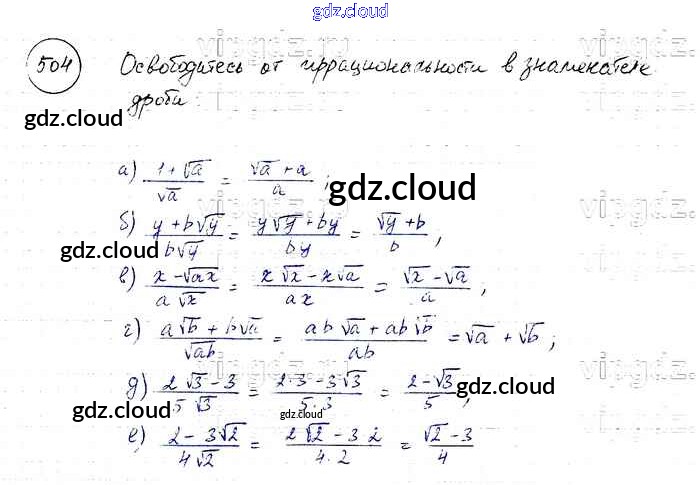 gdz.cloud
504 Освободитесь от иррациональности в знаменателе
дроби:
gdz.cloud
а) (1+√a)/√a = (√a+a)/a ;
gdz.cloud
б) (y+b√y)/(b√y) = (y√y+by)/(by) = (√y+b)/b ,
gdz.cloud
в) (x-√ax)/(a√x) = (x√x-x√a)/(ax) = (√x-√a)/a ,
г) (a√b+b√a)/√ab = (ab√a+ab√b)/(ab) = √a+√b ;
д) (2√3-3)/(5√3) = (2·3-3√3)/(5·3) = (2-√3)/5 ,
gdz.cloud
gdz.cloud
gdz.cloud
е) (2-3√2)/(4√2) = (2√2-3·2)/(4·2) = (√2-3)/4